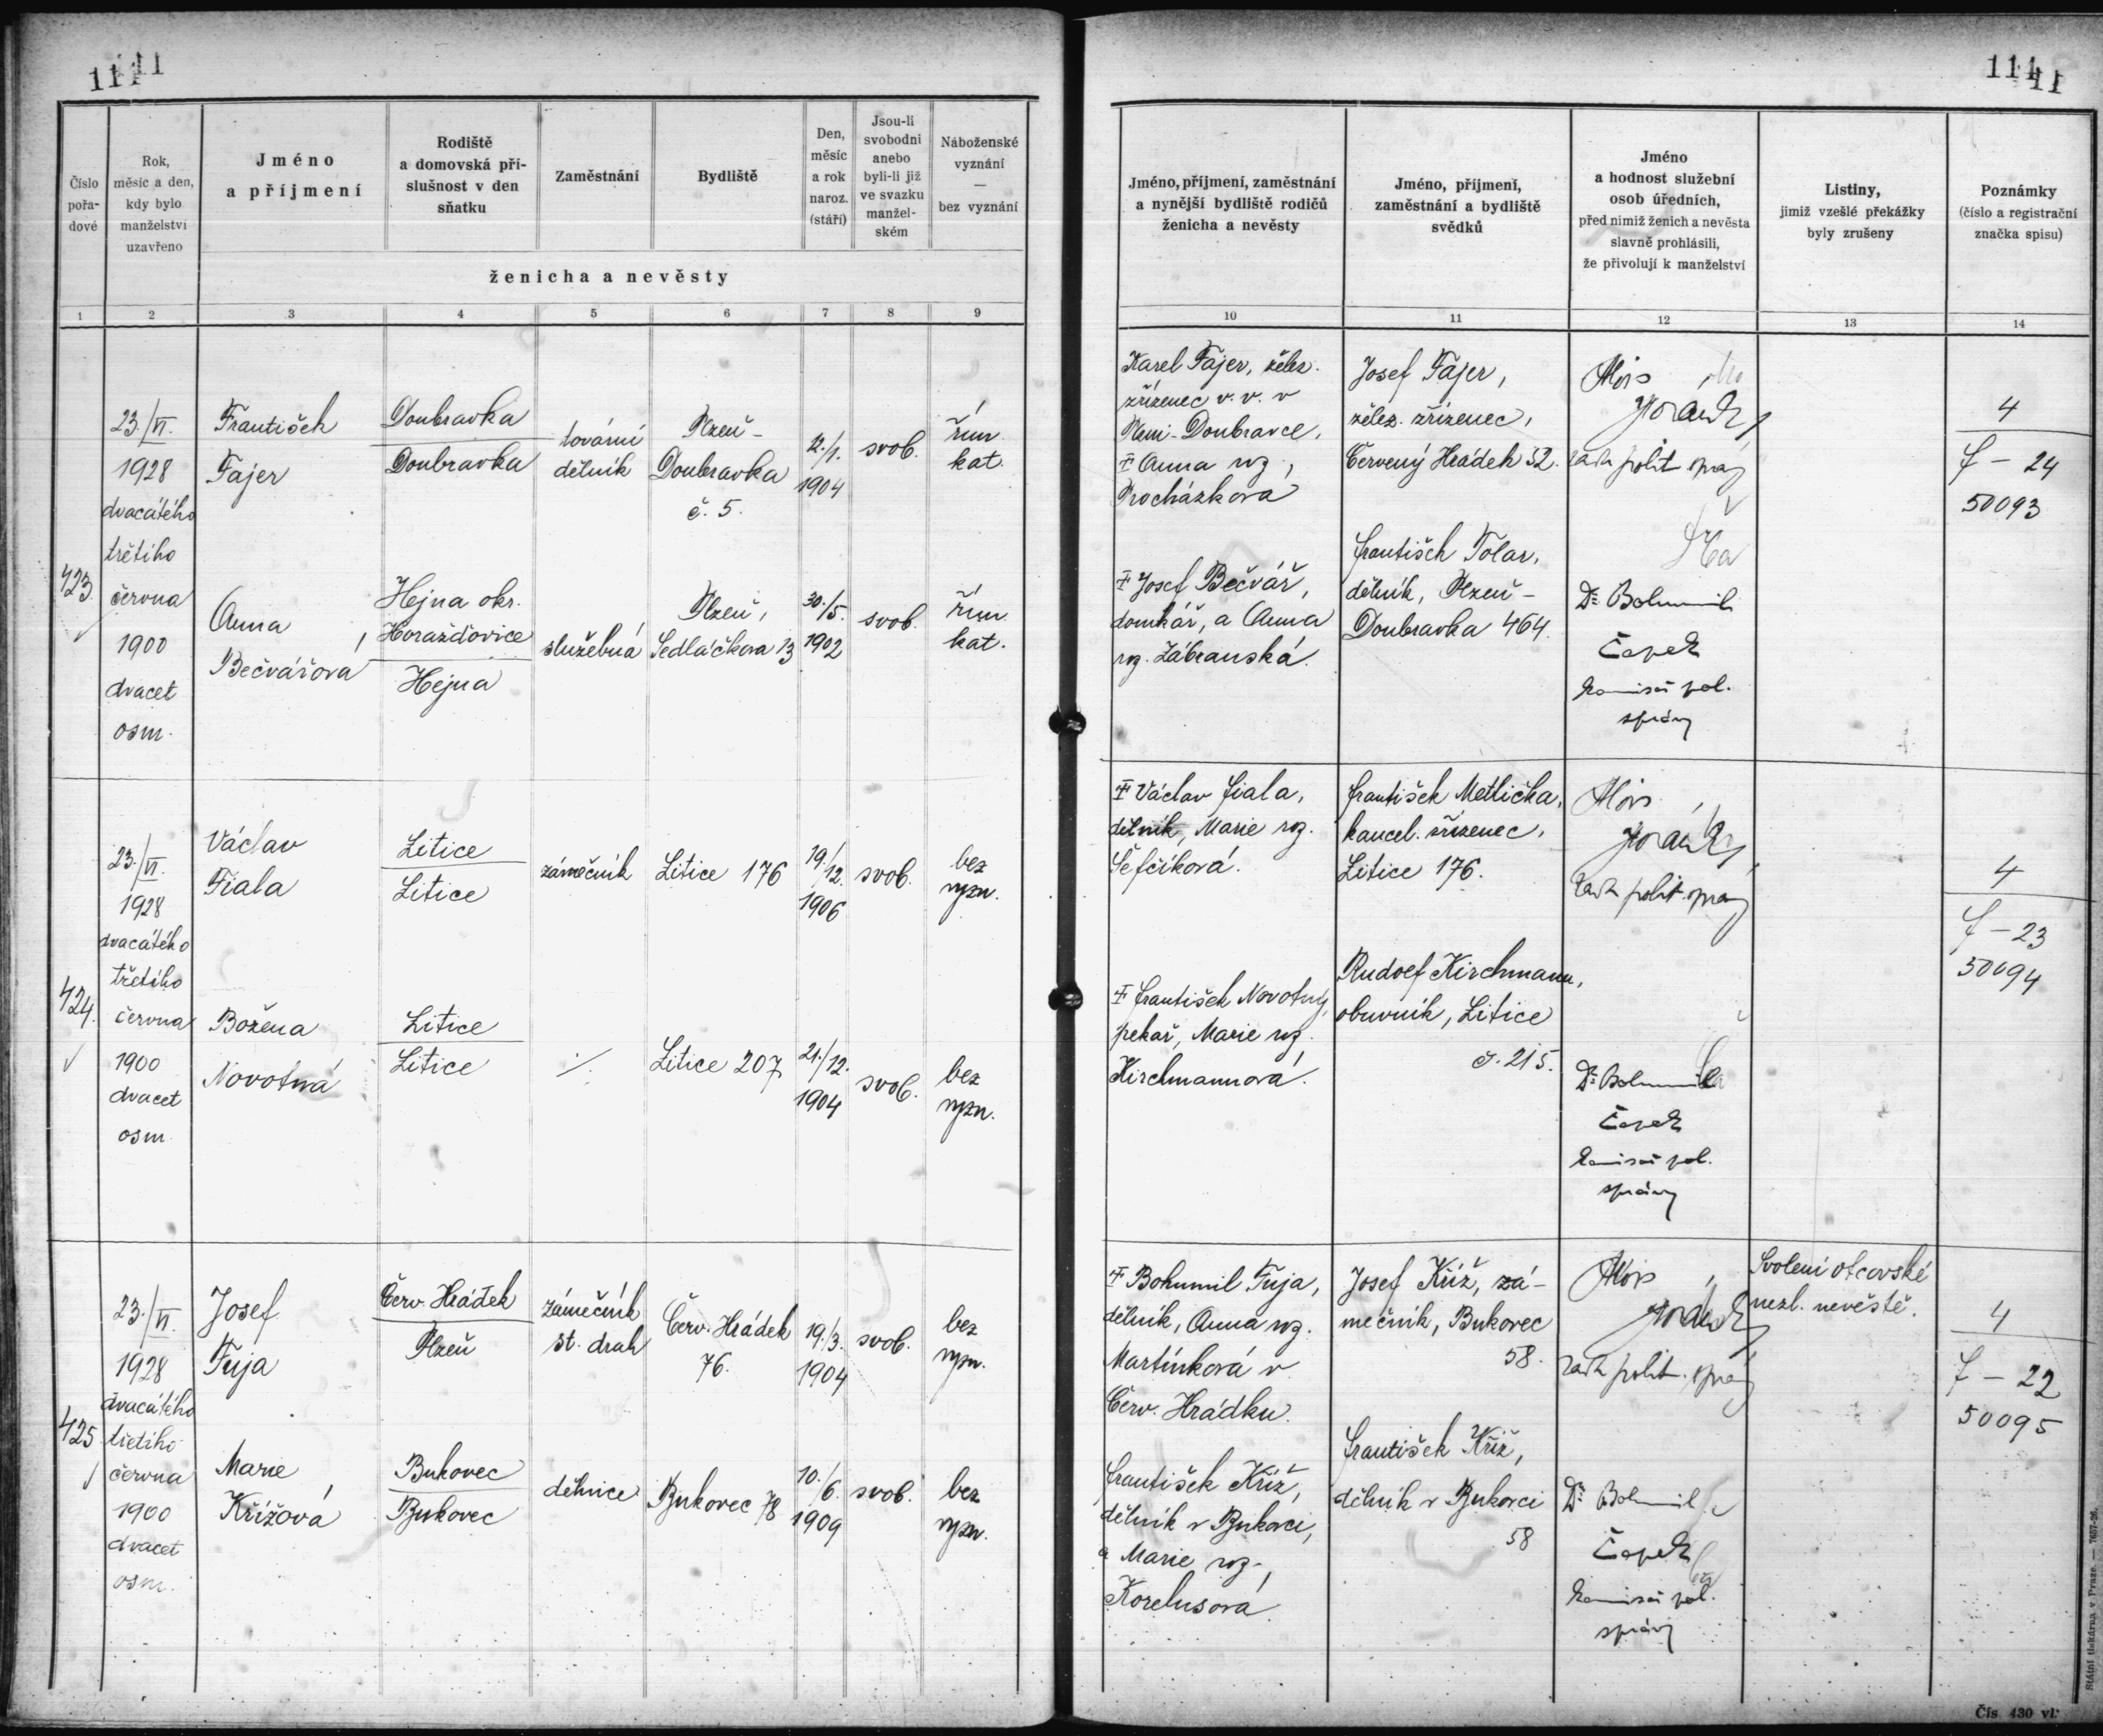 111
11
Číslo
pořa-
dové
Rok,
měsíc a den,
kdy bylo
manželství
uzavřeno
Jméno
a příjmení
Rodiště
a domovská pří-
slušnost v den
sňatku
Zaměstnání
Bydliště
Den,
měsíc
a rok
naroz.
(stáří)
Jsou-li
svobodni
anebo
byli-li již
ve svazku
manžel-
ském
Náboženské
vyznání
—
bez vyznání
ženicha a nevěsty
1 2 3 4 5 6 7 8 9
423.
23./VI.
1928
dvacátého
třetího
června
1900
dvacet
osm.
František
Fajer
Doubravka
Doubravka
tovární
dělník
Plzeň-
Doubravka
č. 5.
12./1.
1904
svob.
řím.
kat.
Anna
Bečvářová
Hejna okr.
Horažďovice
Hejna
služebná
Plzeň,
Sedláčkova 13
30./5.
1902
svob.
řím.
kat.
424.
23./VI.
1928
dvacátého
třetího
června
1900
dvacet
osm.
Václav
Fiala
Litice
Litice
zámečník
Litice 176
19./12.
1906
svob.
bez
vyzn.
Božena
Novotná
Litice
Litice
./.
Litice 207
21./12.
1904
svob.
bez
vyzn.
425
23./VI.
1928
dvacátého
třetího
června
1900
dvacet
osm.
Josef
Fuja
Červ. Hrádek
Plzeň
zámečník
st. drah
Červ. Hrádek
76.
19./3.
1904
svob.
bez
vyzn.
Marie
Křížová
Bukovec
Bukovec
dělnice
Bukovec 78
10./6.
1909
svob.
bez
vyzn.
111
11
Jméno, příjmení, zaměstnání
a nynější bydliště rodičů
ženicha a nevěsty
Jméno, příjmení,
zaměstnání a bydliště
svědků
Jméno
a hodnost služební
osob úředních,
před nimiž ženich a nevěsta
slavně prohlásili,
že přivolují k manželství
Listiny,
jimiž vzešlé překážky
byly zrušeny
Poznámky
(číslo a registrační
značka spisu)
10 11 12 13 14
Karel Fajer, želez.
zřízenec v. v. v
Plzni-Doubravce,
‡ Anna roz.
Procházková
Josef Fajer,
želez. zřízenec,
Červený Hrádek 52.
Alois
rada polit. správy
4
f - 24
50093
‡ Josef Bečvář,
domkář, a Anna
roz. Zábranská.
František Tolar,
dělník, Plzeň-
Doubravka 464.
Dr. Bohumil
Čapek
komisař pol.
správy
‡ Václav Fiala,
dělník, Marie roz.
Šefčíková.
František Metlička,
kancel. zřízenec,
Litice 176.
Alois
rada polit. správy
4
f - 23
50094
‡ František Novotný,
pekař, Marie roz.
Kirchmannová.
Rudolf Kirchmann,
obuvník, Litice
č. 215.
Dr. Bohumil
Čapek
komisař pol.
správy
‡ Bohumil Fuja,
dělník, Anna roz.
Martínková v
Červ. Hrádku.
Josef Kříž, zá-
mečník, Bukovec
58.
Alois
rada polit. správy
Svolení otcovské
nezl. nevěstě.
4
f - 22
50095
František Kříž,
dělník v Bukovci,
a Marie roz.
Korelusová.
František Kříž,
dělník v Bukovci
58
Dr. Bohumil
Čapek
komisař pol.
správy
Státní tiskárna v Praze. — 7657-26.
Čís. 430 vl.